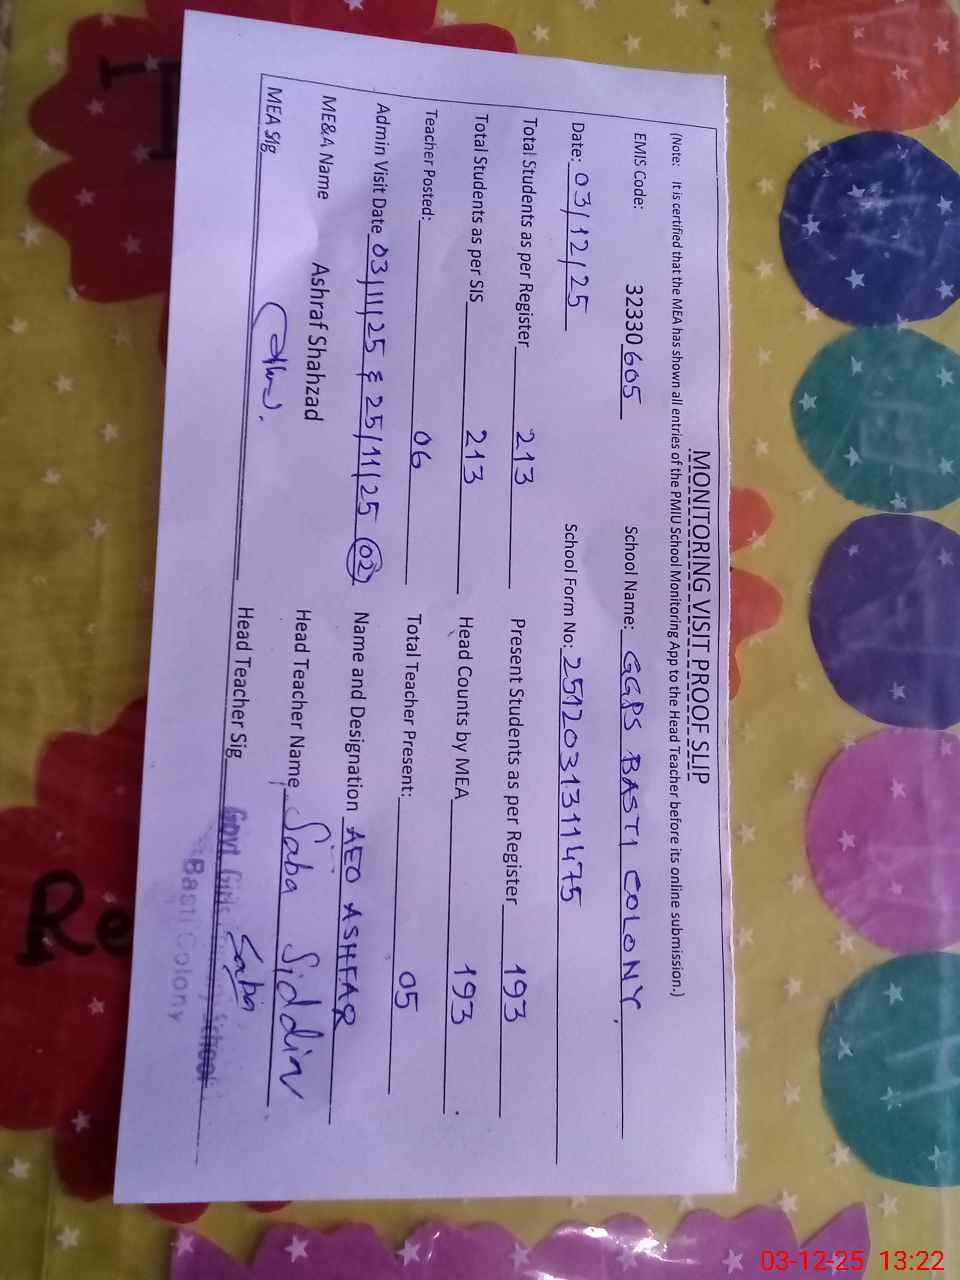 MONITORING VISIT PROOF SLIP
(Note: It is certified that the MEA has shown all entries of the PMIU School Monitoring App to the Head Teacher before its online submission.)
EMIS Code: 32330605 School Name: GGPS BASTI COLONY.
Date: 03/12/25 School Form No: 2512031311475
Total Students as per Register 213 Present Students as per Register 193
Total Students as per SIS 213 Head Counts by MEA 193
Teacher Posted: 06 Total Teacher Present: 05
Admin Visit Date 03/11/25 & 25/11/25 02 Name and Designation AEO ASHFAQ
ME&A Name Ashraf Shahzad Head Teacher Name Saba Siddin
MEA Sig Head Teacher Sig Saba
Govt Girls Primary School
Basti Colony
Re
03-12-25 13:22